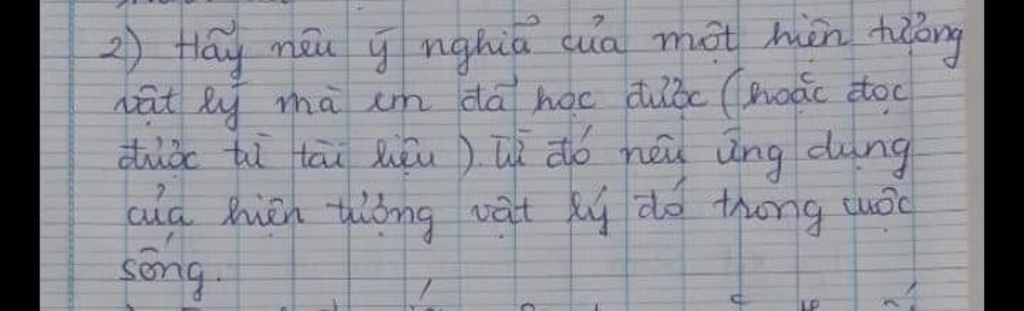 2) Hãy nêu ý nghiã của một hiện tượng
vật lý mà em đã học được (hoặc đọc
được từ tài liệu). Từ đó nêu ứng dụng
của hiện tượng vật lý đó trong cuộc
sống.